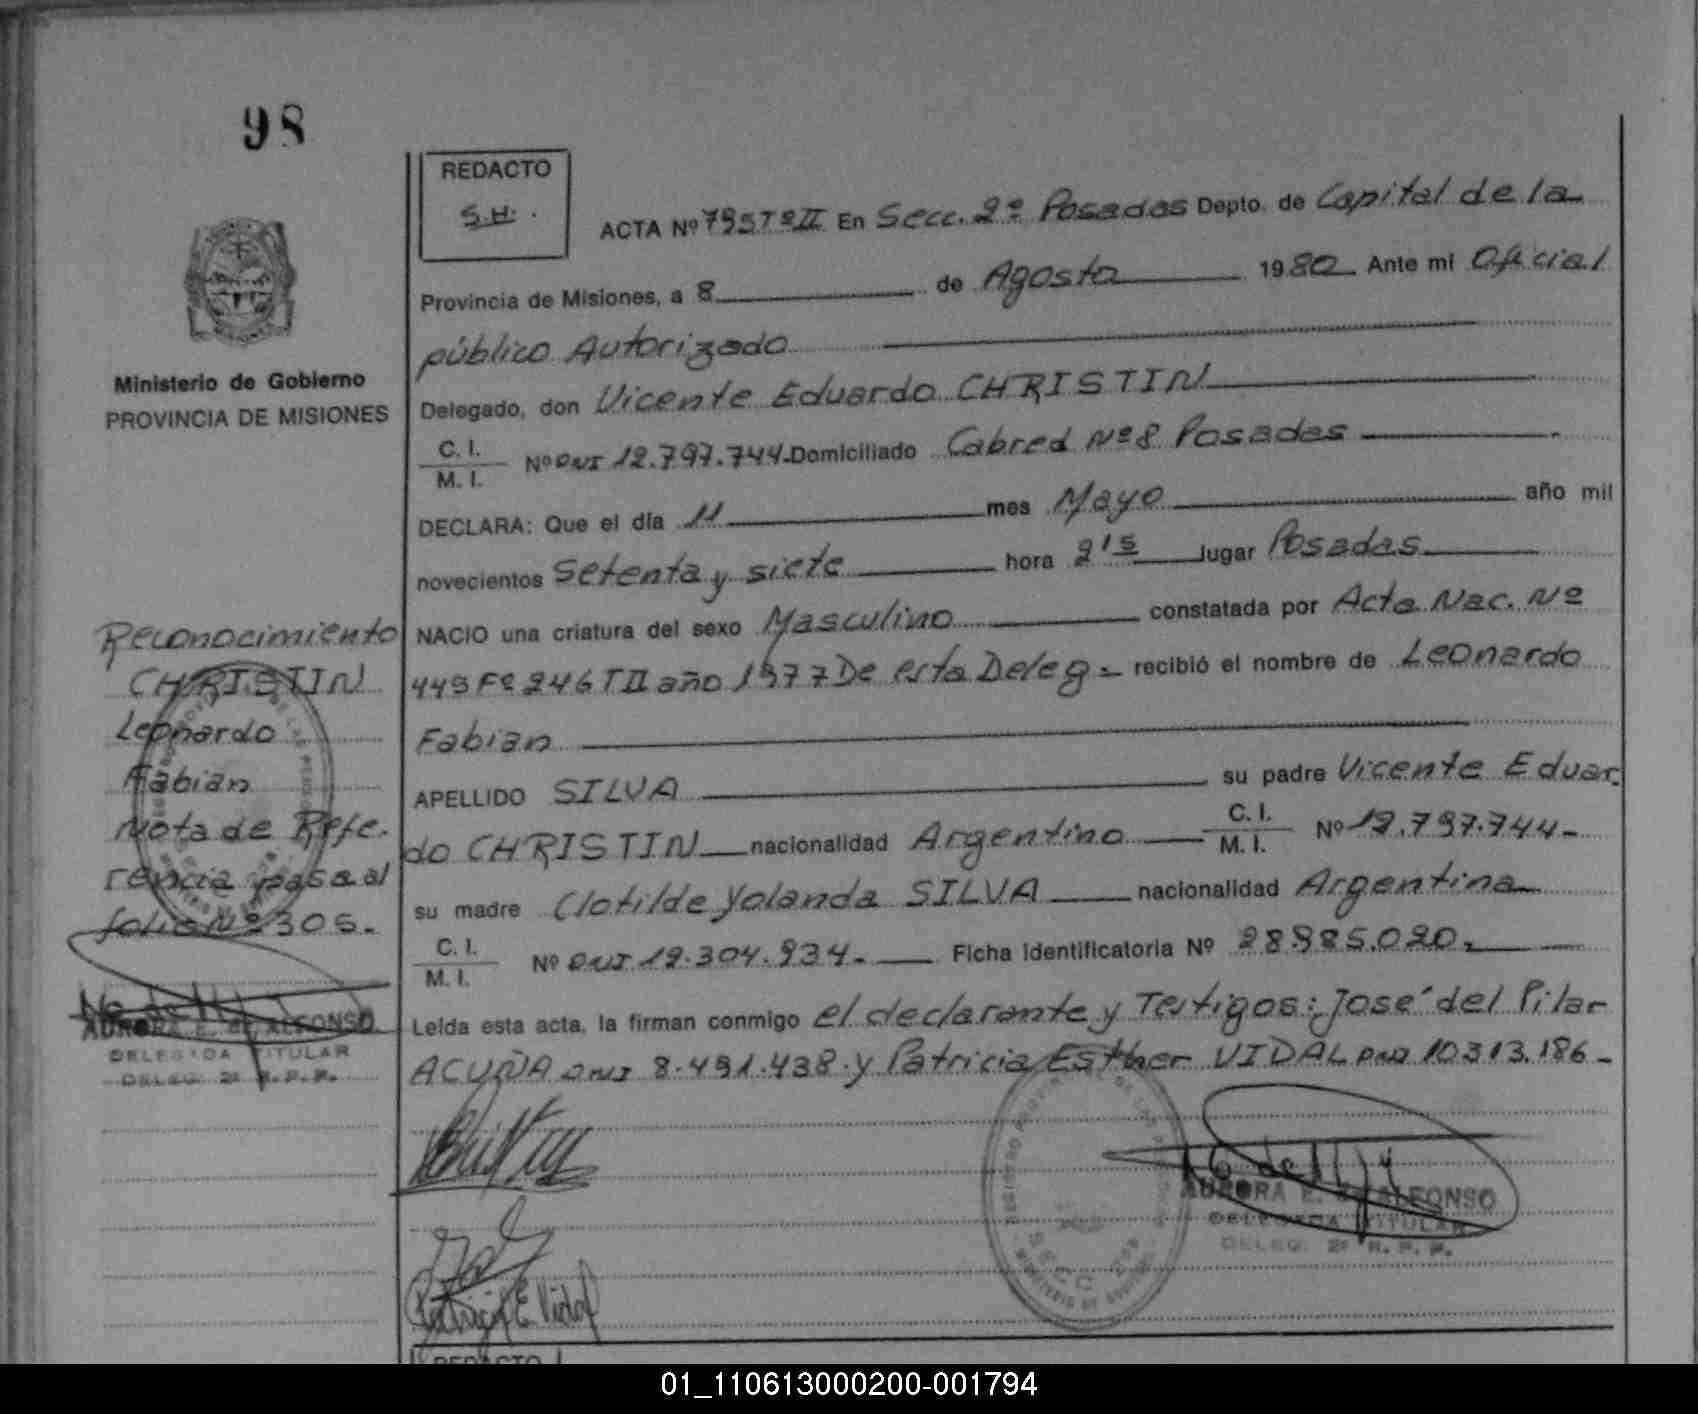 98
REDACTO
S.H.
ACTA Nº 795 Tº II En Secc. 2º Posadas Depto. de Capital de la
Provincia de Misiones, a 8 de Agosto 1980 Ante mi Oficial
público Autorizado
Delegado, don Vicente Eduardo CHRISTIN
C. I.
M. I.
Nº DNI 12.797.744. Domiciliado Cabred Nº 8 Posadas
DECLARA: Que el día 11 mes Mayo año mil
novecientos Setenta y siete hora 2 15 lugar Posadas
NACIO una criatura del sexo Masculino constatada por Acta Nac. Nº
449 Fº 246 T II año 1977 De esta Deleg - recibió el nombre de Leonardo
Fabian
APELLIDO SILVA su padre Vicente Eduar
do CHRISTIN nacionalidad Argentino C. I. M. I. Nº 12.797.744-
su madre Clotilde Yolanda SILVA nacionalidad Argentina
C. I.
M. I.
Nº DNI 12.304.934.- Ficha identificatoria Nº 28.985.020.
Leída esta acta, la firman conmigo el declarante y Testigos: José del Pilar
ACUÑA DNI 8.491.438. y Patricia Esther VIDAL DNI 10313.186-
Patricia E Vidal
AURORA E. de ALFONSO
DELEGADA TITULAR
DELEG. 2ª R. P. P.
Ministerio de Gobierno
PROVINCIA DE MISIONES
Reconocimiento
CHRISTIN
Leonardo
Fabian
Nota de Refe.
rencia pasa al
folio Nº 305.
AURORA E. de ALFONSO
DELEGADA TITULAR
DELEG. 2ª R. P. P.
REDACTO
01_110613000200-001794